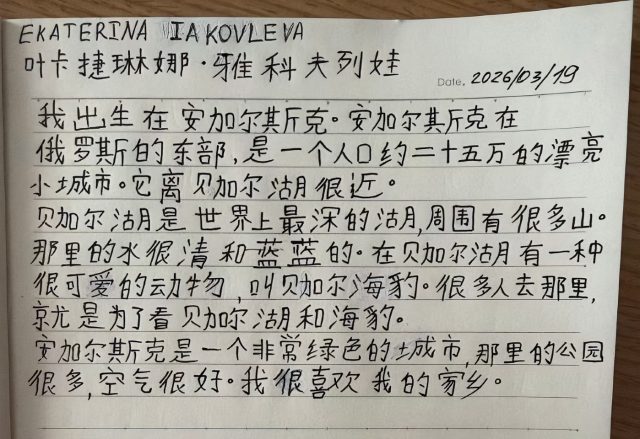 EKATERINA IAKOVLEVA
叶卡捷琳娜·雅科夫列娃
Date. 2026/03/19
我出生在安加尔斯克。安加尔斯克在
俄罗斯的东部,是一个人口约二十五万的漂亮
小城市。它离贝加尔湖很近。
贝加尔湖是世界上最深的湖,周围有很多山。
那里的水很清和蓝蓝的。在贝加尔湖有一种
很可爱的动物,叫贝加尔海豹。很多人去那里,
就是为了看贝加尔湖和海豹。
安加尔斯克是一个非常绿色的城市,那里的公园
很多,空气很好。我很喜欢我的家乡。